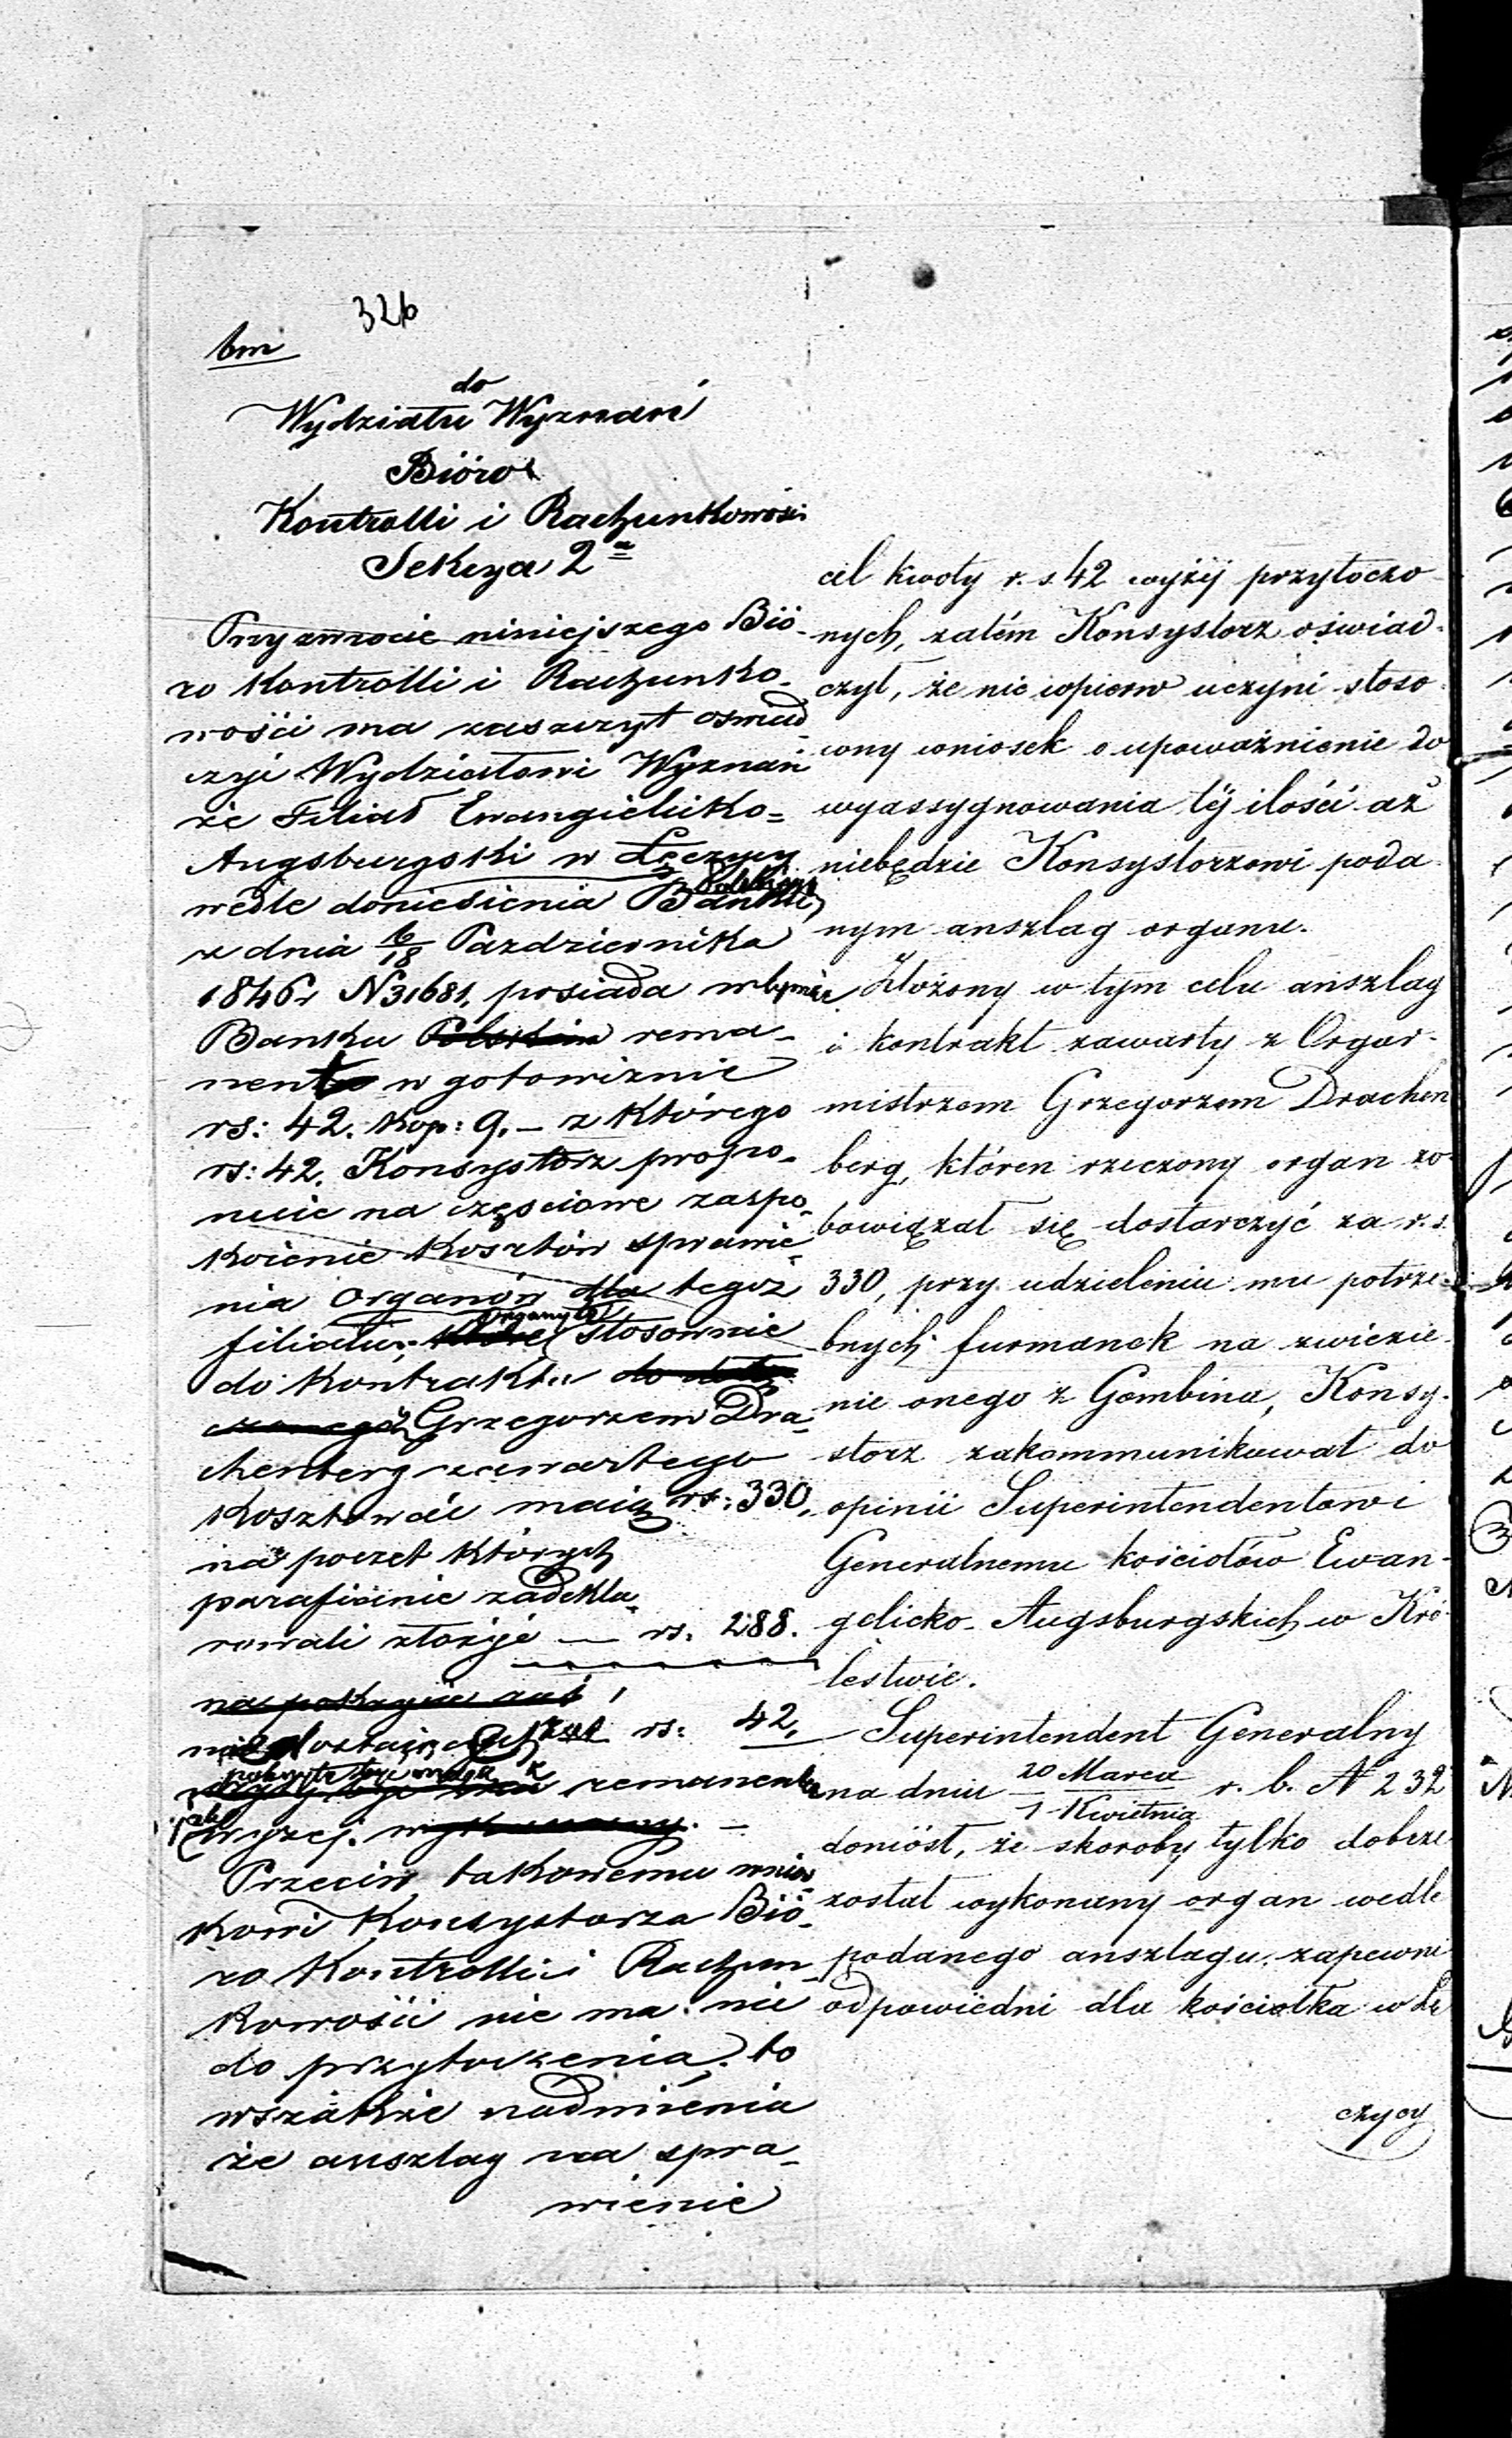 326
bm
do
Wydziału Wyznań
Bióro
Kontrolli i Rachunkowości
Sekcya 2ª
Przy zwrocie niniejszego Bió-
ro Kontrolli i Rachunko-
wości ma zaszczyt oświad
czyć Wydziałowi Wyznań
że Filiał Ewangielicko=
Augsburgski w Łęczycy
wedle doniesienia Banku Polskiego
z dnia 6/18 Pazdziernika
1846 r N31681, posiada w tymże
Banku Polskim rema-
nentu w gotowiznie
rs: 42. kop: 9. – z którego
rs: 42. Konsystorz propo-
nuie na częsciowe zaspo-
koienie kosztów sprawie-
nia organów dla tegoż
filiału; które organy te stosownie
do kontraktu
z Grzegorzem Dra-
chenberg zawartego
kosztować maią rs: 330.
na poczet których
parafianie zadekla-
rowali złożyć — rs. 288.
na pokrycie zaś
niedostaiących zaś rs: 42.
pokryte być maią z remanentu
jak wyżej.
Przeciw takowemu wnios-
kowi Konsystorza Bió-
ro Kontrolli i Rachun-
kowości nie ma nic
do przytoczenia, to
wszakże nadmienia
że anszlag na spra-
wienie
cel kwoty r. s 42 wyżéj przytoczo-
nych, zatém Konsystorz oświad-
czył, że nie wpierw uczyni stoso-
wny wniosek o upoważnienie do
wyassygnowania téj ilości aż
niebędzie Konsystorzowi poda-
nym anszlag organu.
Złożony w tym celu anszlag
i kontrakt zawarty z Organ-
mistrzem Grzegorzem Drachen
berg, któren rzeczony organ zo-
bowiązał się dostarczyć za r. s.
330, przy udzieleniu mu potrze-
bnych furmanek na zwiezie-
nie onego z Gombina, Konsy-
storz zakommunikował do
opinii Superintendentowi
Generalnemu kościołów Ewan-
gelicko-Augsburgskich w Kró-
lestwie.
Superintendent Generalny
na dniu 20 Marca / 1 Kwietnia r. b. N 232
doniósł, że skoroby tylko dobrze
został wykonany organ wedle
podanego anszlagu, zapewne
odpowiedni dla kościołka w Łę
czycy